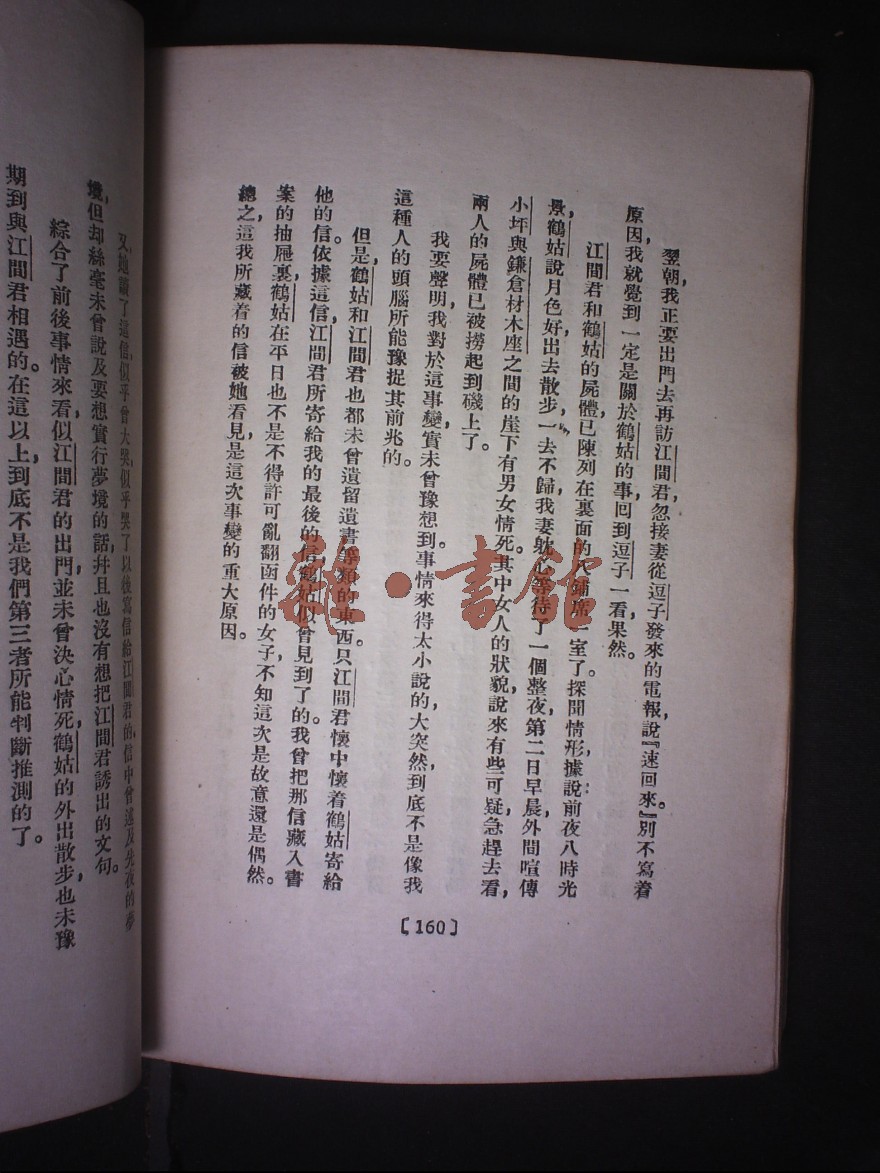 翌朝，我正要出門去再訪江間君，忽接妻從逗子發來的電報，說『速回來。』別不寫着
原因我就覺到一定是關於鶴姑的事，回到逗子一看果然。
江間君和鶴姑的屍體，已陳列在裏面的八鋪席一室了。探聞情形，據說前夜八時光
景，鶴姑說月色好出去散步，一去不歸，我妻躭心等待了一個整夜。第二日早晨，外間喧傳
小坪與鎌倉材木座之間的崖下有男女情死，其中女人的狀貌，說來有些可疑，急趕去看，
兩人的屍體已被撈起到磯上了。
我要聲明，我對於這事變，實未曾豫想到。事情來得太小說的，大突然，到底不是像我
這種人的頭腦所能豫捉其前兆的。
但是，鶴姑和江間君也都未曾遺留遺書等類的東西。只江間君懷中懷着鶴姑寄給
他的信。依據這信，江間君所寄給我的最後的信，鶴姑似曾見到了的。我曾把那信藏入書
案的抽屜裏，鶴姑在平日也不是不得許可亂翻函件的女子，不知這次是故意還是偶然。
總之，這我所藏着的信被她看見，是這次事變的重大原因。
〔160〕
又，她讀了這信，似乎曾大哭，似乎哭了以後寫信給江間君的，信中曾述及先夜的夢
境，但却絲毫未曾說及要想實行夢境的話，幷且也沒有想把江間君誘出的文句。
綜合了前後事情來看，似江間君的出門，並未曾決心情死，鶴姑的外出散步，也未豫
期到與江間君相遇的。在這以上，到底不是我們第三者所能判斷推測的了。
雜·書館